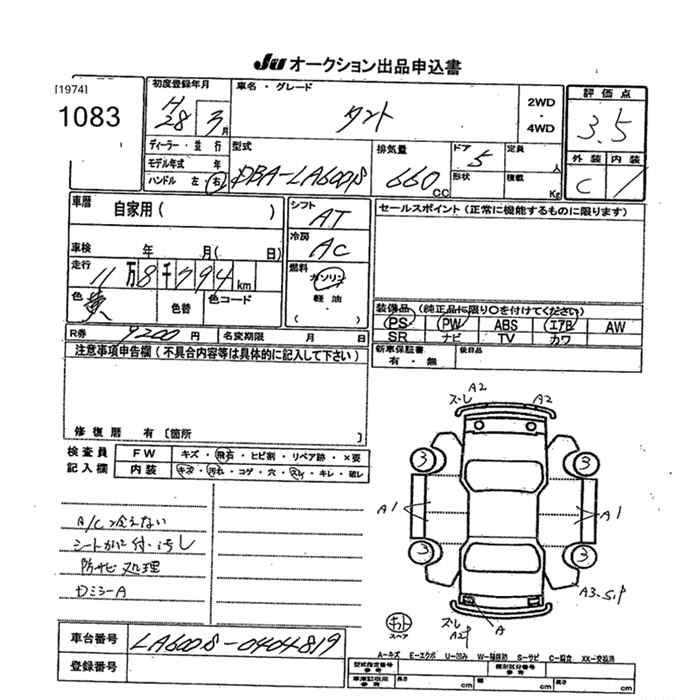 JU オークション出品申込書
[1974]
1083
初度登録年月
H28 3月
車名・グレード
タント
2WD
・
4WD
評価点
3.5
外装 内装
C
ディーラー・並行
モデル年式 年
ハンドル 左・右
型式
DBA-LA600S
排気量
660 CC
ドア
5
形状
定員 人
積載 Kg
車歴
自家用( )
車検 年 月( 日)
走行
11万8千794km
色
黄
色替
色コード
シフト
AT
冷房
AC
燃料
ガソリン
軽油・
( )
セールスポイント(正常に機能するものに限ります)
装備品(純正品に限り○を付けてください)
PS PW ABS エアB AW
SR ナビ TV カワ
R券 9200円 名変期限 月 日
新車保証書
有・無
後日品
注意事項申告欄(不具合内容等は具体的に記入して下さい)
修復歴 有[箇所 ]
検査員
記入欄
FW キズ・飛石・ヒビ割・リペア跡・×要
内装 キズ・汚れ・コゲ・穴・スレ・キレ・破レ
A/C冷えない
防サビ処理
ズレ A2 A2
3 3
A1 A1
3 3
A3.S.P
キット
スペア
ズレ
A
A2P
A―キズ E―エクボ U―凹み W―補修跡 S―サビ C―腐立 XX―交換済
車台番号
LA600S-0404819
登録番号
型式指定番号
参考
類別区分番号
参考
車庫証明用
参考
長さ cm 幅 cm 高さ cm